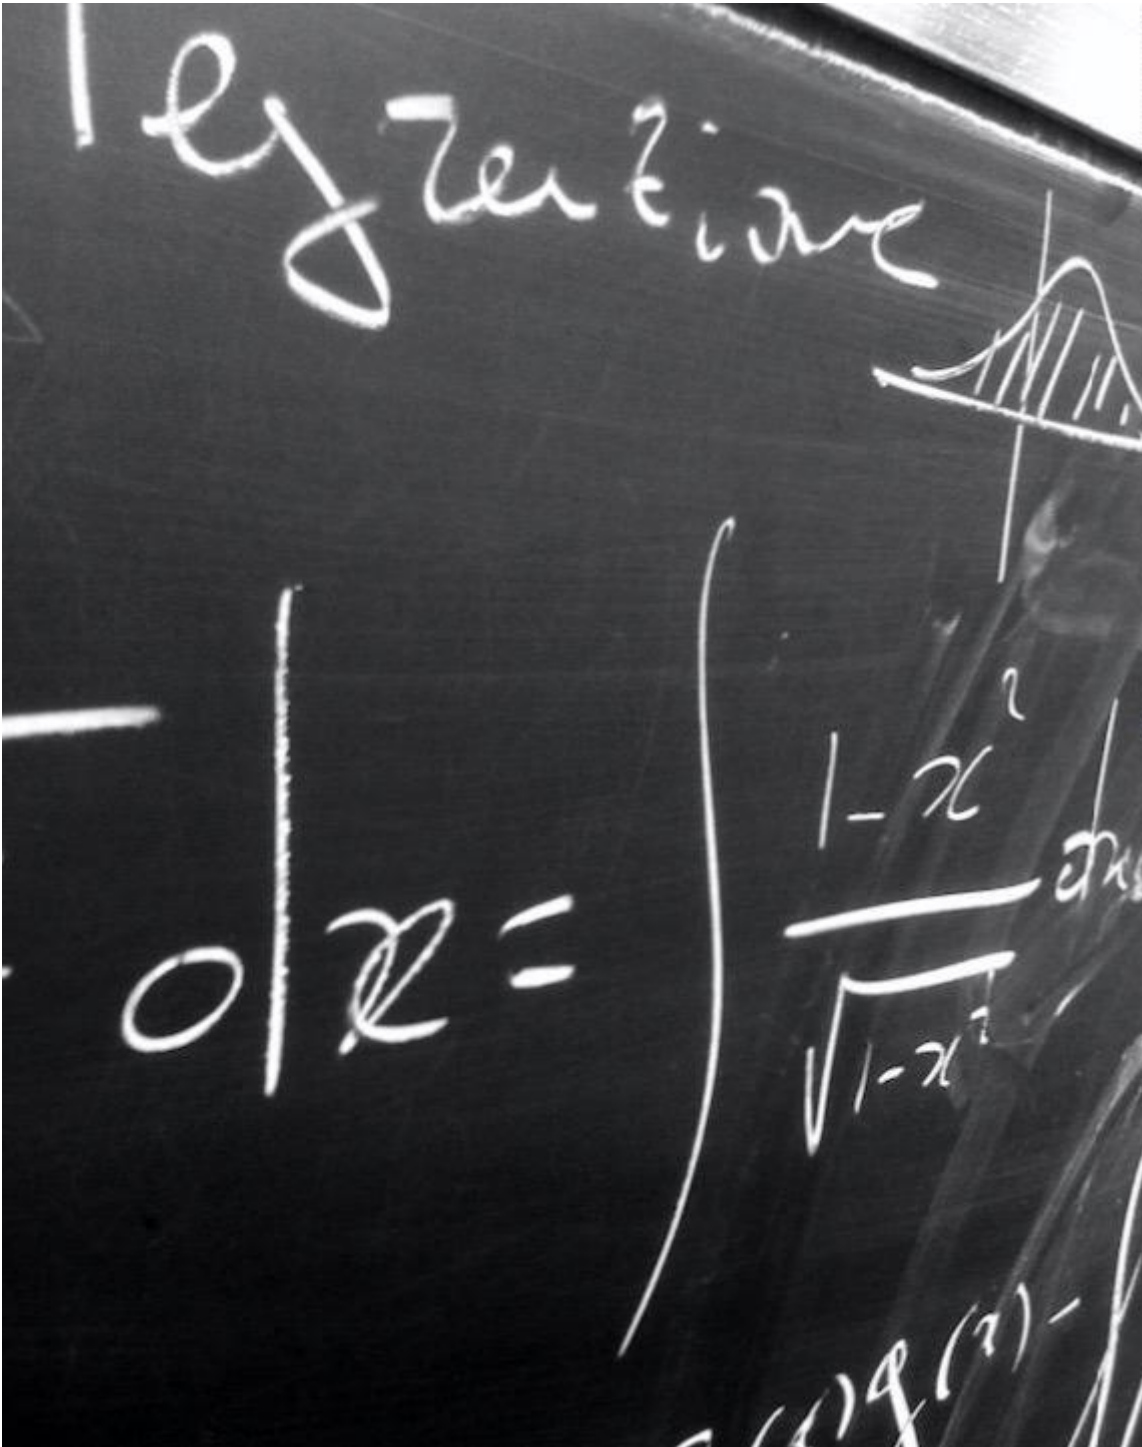 tegrazione
dx = ∫ \frac{1-x^2}{\sqrt{1-x^2}} dx
g(x) -